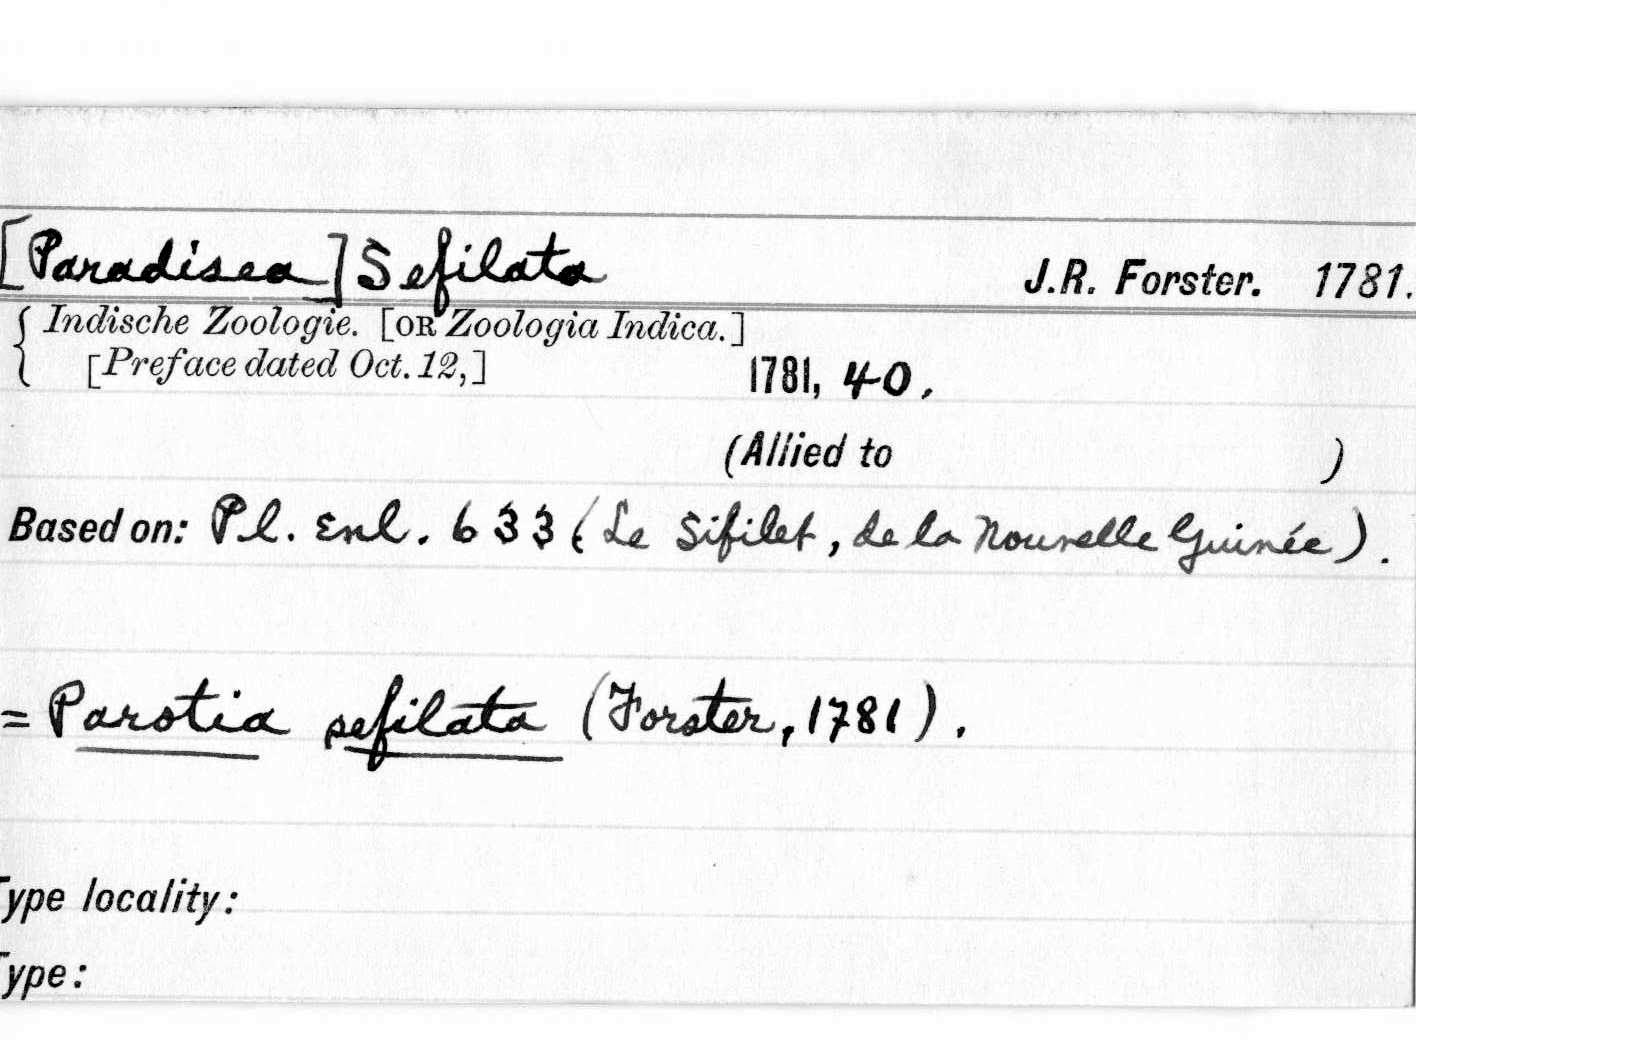 [Paradisea] Sefilata J.R. Forster. 1781.
{ Indische Zoologie. [OR Zoologia Indica.]
[Preface dated Oct. 12,] 1781, 40.
(Allied to )
Based on: Pl. Enl. 633 (Le Sifilet, de la Nouvelle Guinée).
= Parotia sefilata (Forster, 1781).
Type locality:
Type: